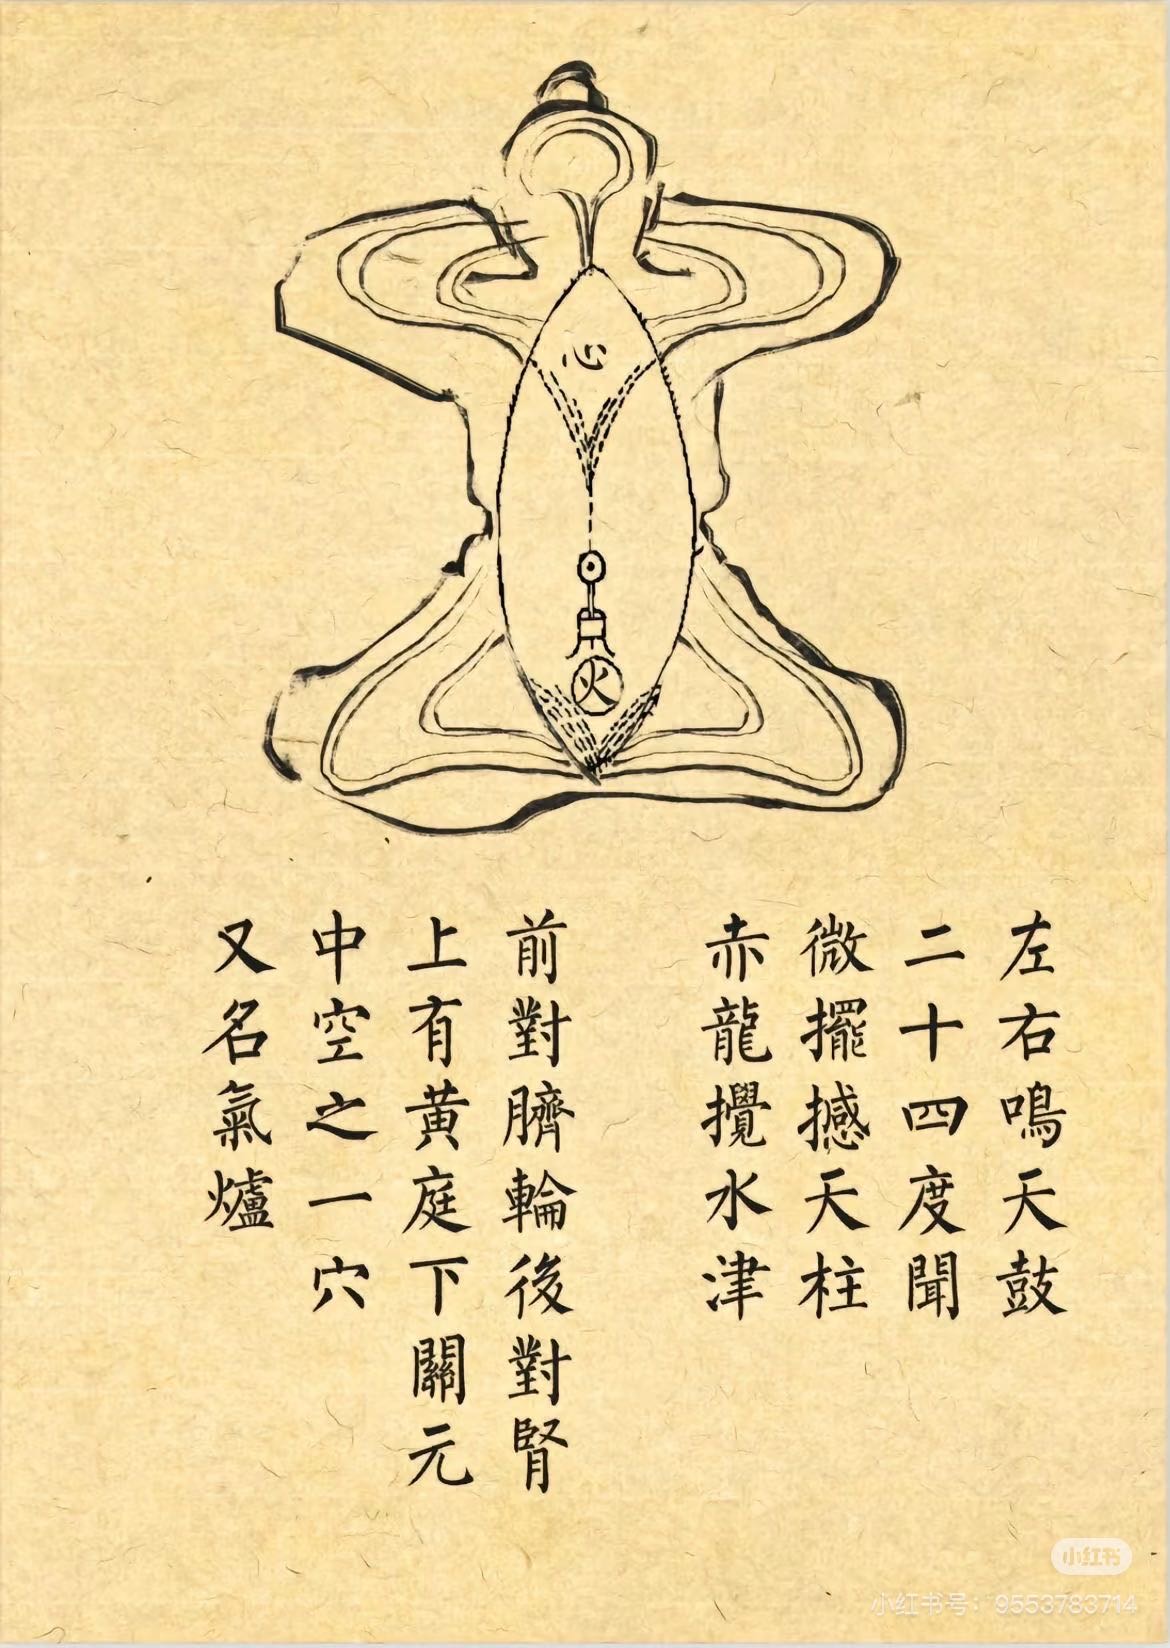 心
火
左右鳴天鼓
二十四度聞
微擺撼天柱
赤龍攪水津
前對臍輪後對腎
上有黃庭下關元
中空之一穴
又名氣爐
小红书
小红书号：9553783714